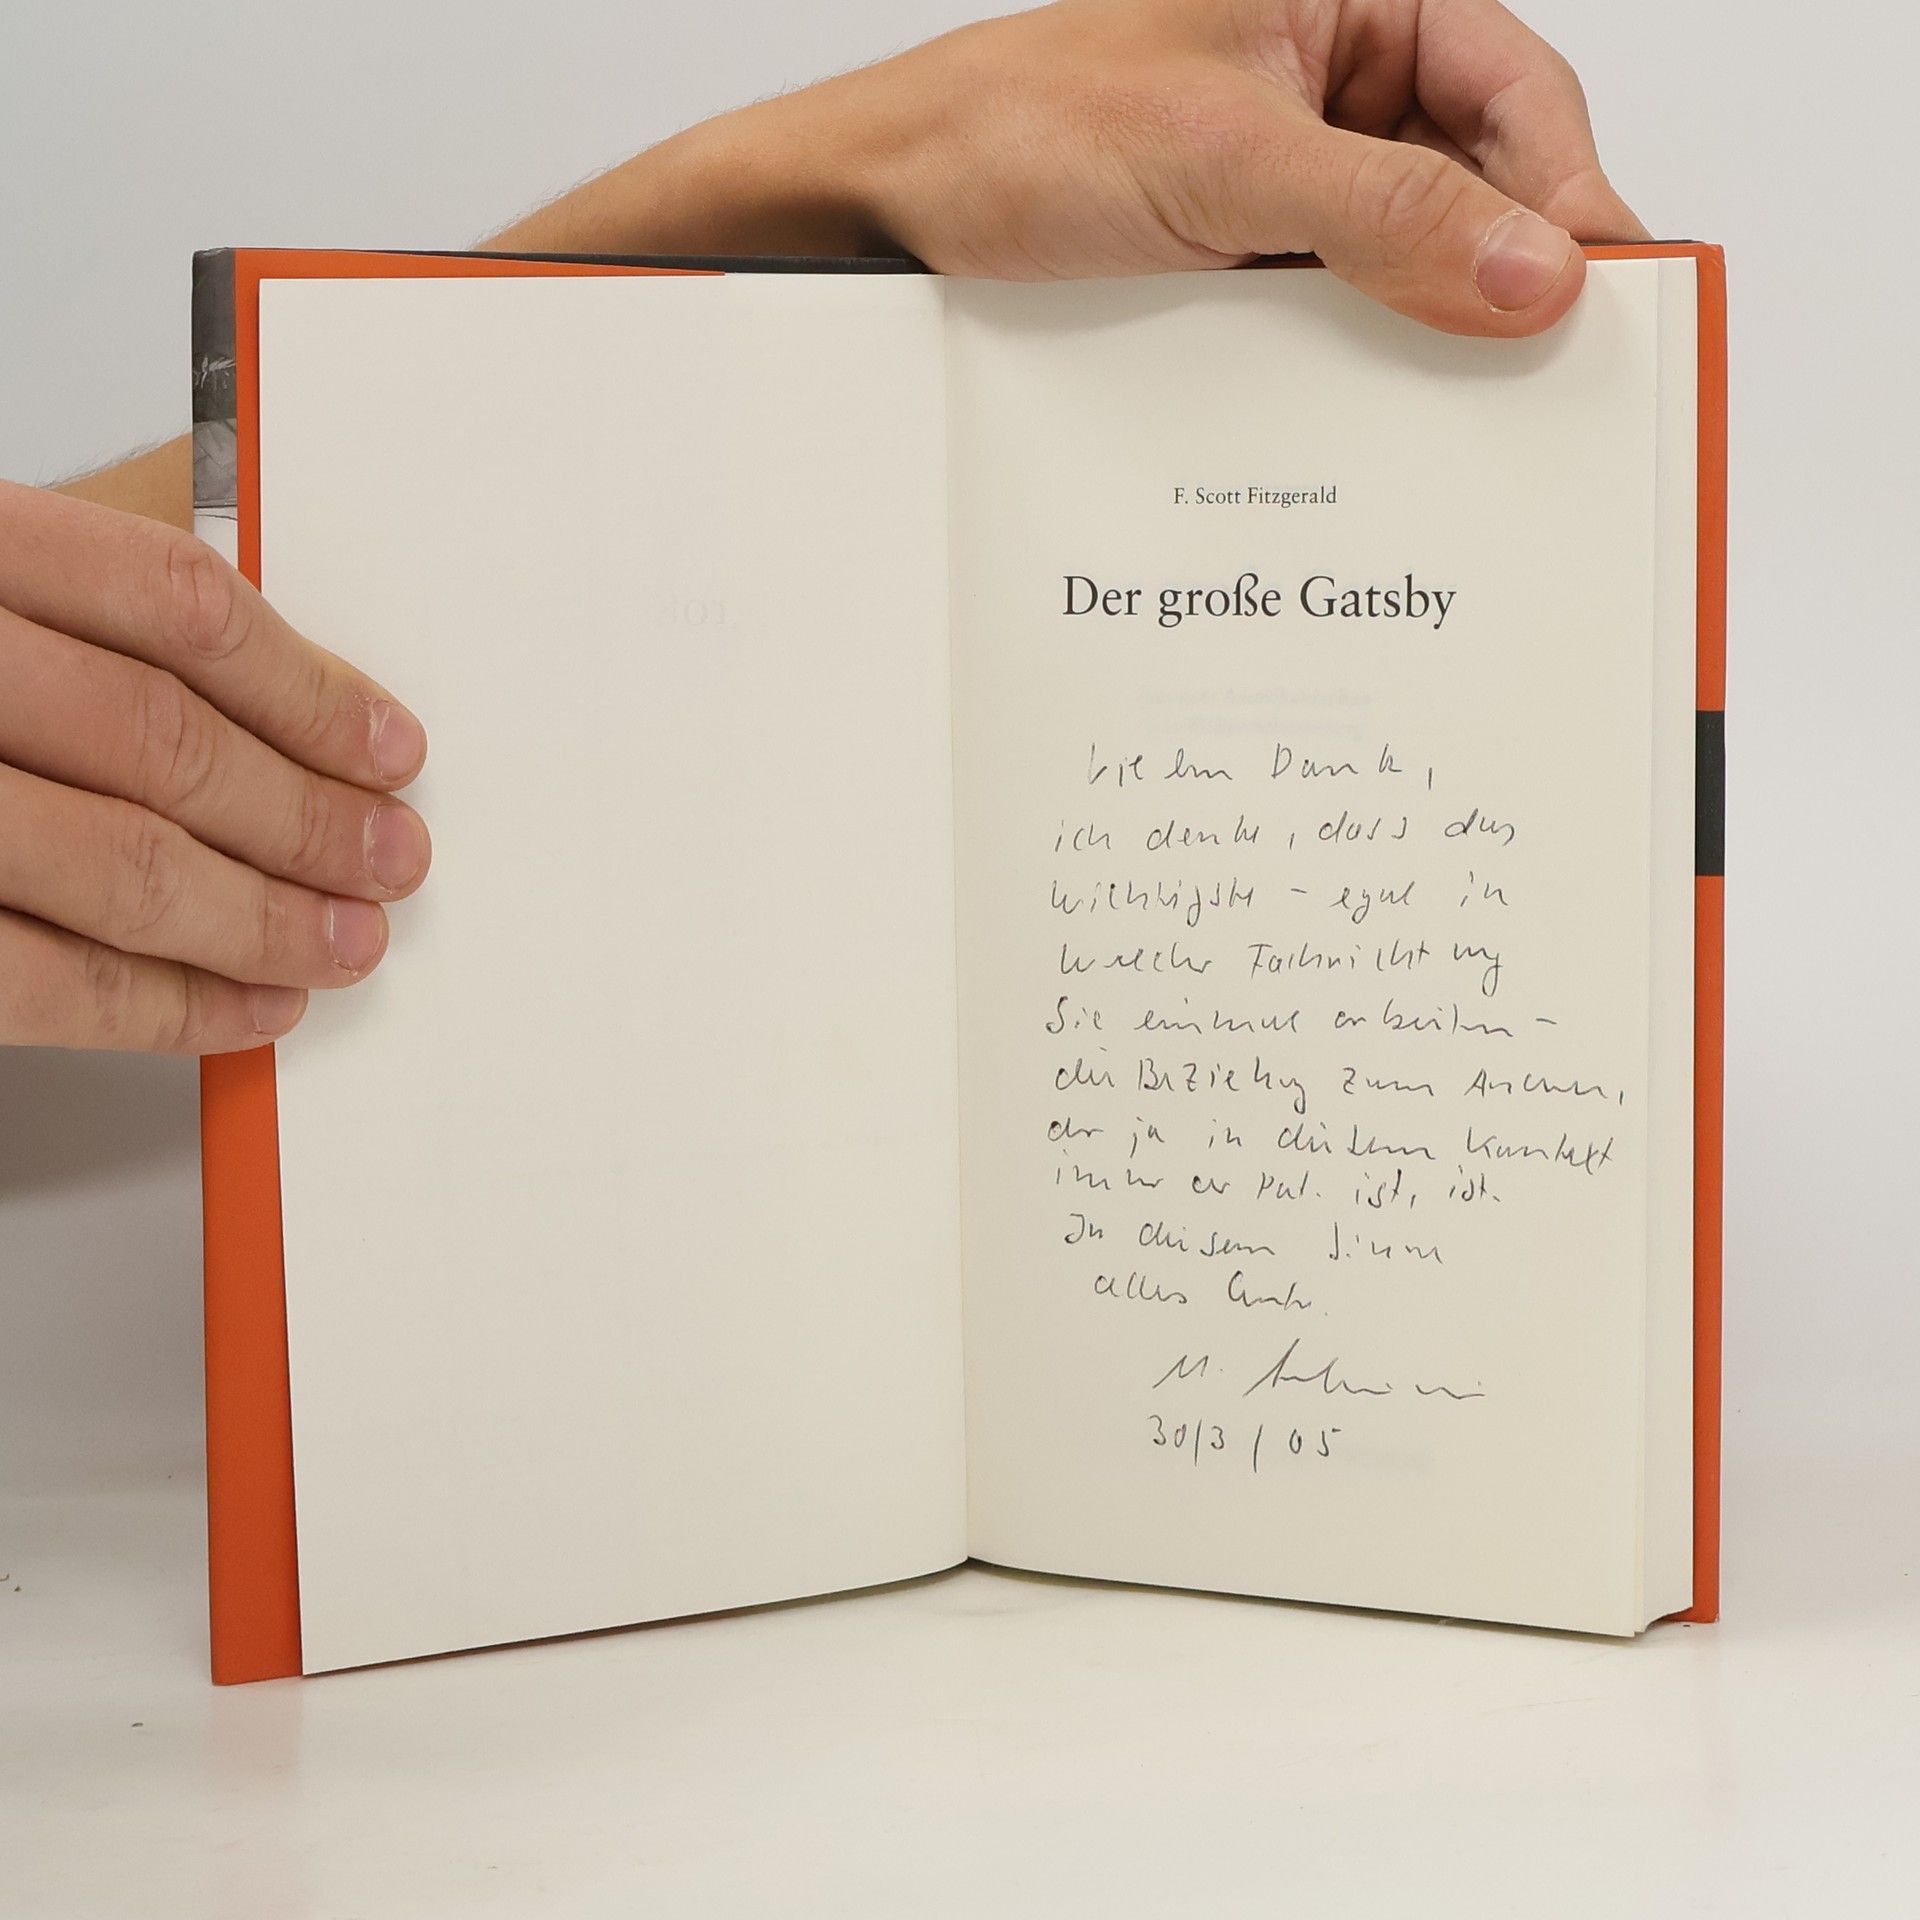 F. Scott Fitzgerald
Der große Gatsby
Vielen Dank,
ich denke, dass das
Wichtigste - egal in
welcher Fachrichtung
Sie einmal arbeiten -
die Beziehung zum
der ja in diesem Kontext
immer der Pat. ist, ist.
In diesem Sinne
alles Gute.
M.
30/3/05